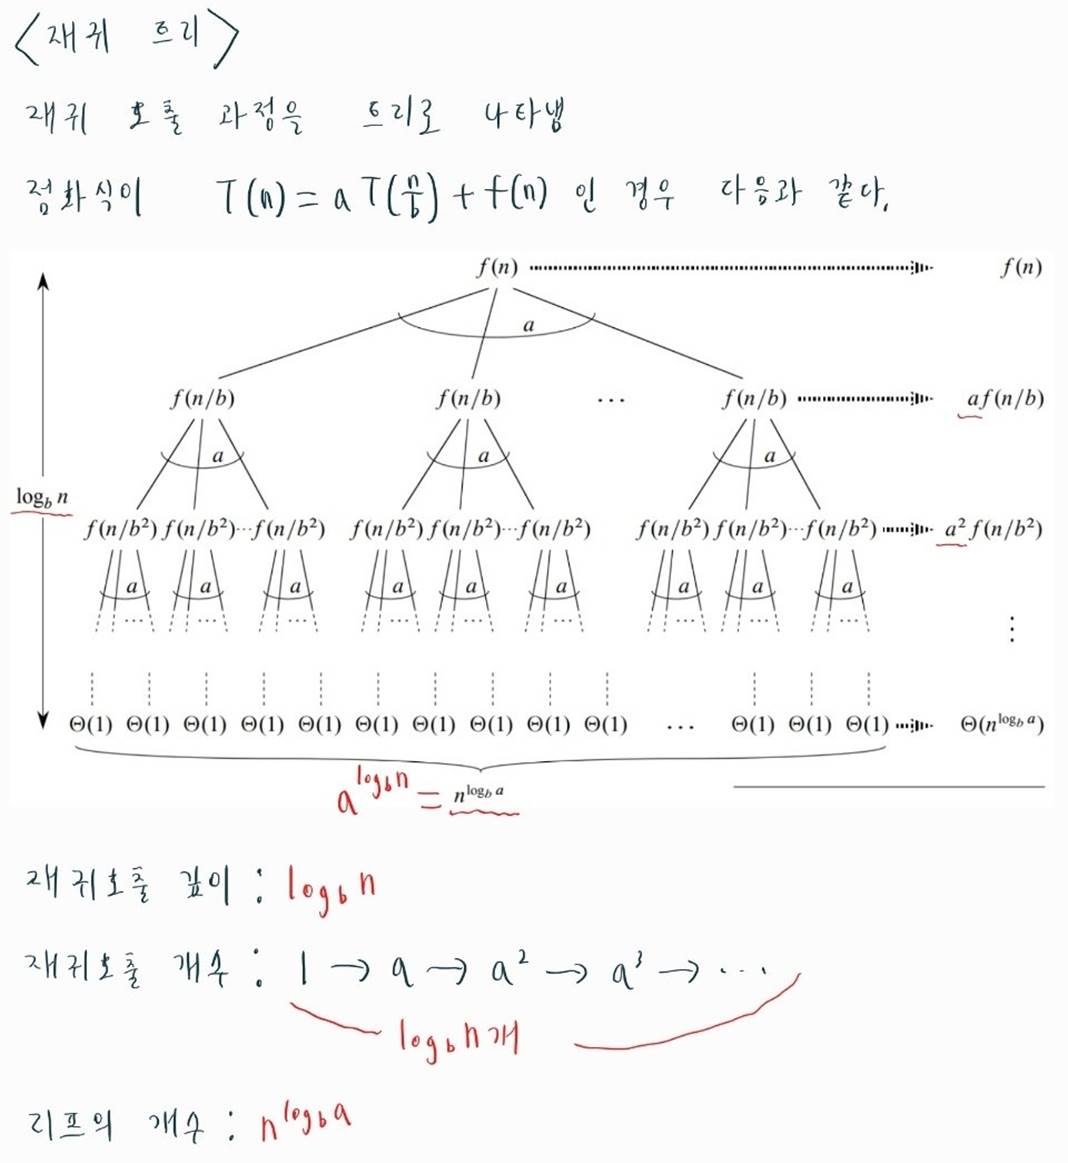 <재귀 트리>
재귀 호출 과정을 트리로 나타냄
점화식이 T(n) = a T(n/b) + f(n) 인 경우 다음과 같다.
f(n) f(n)
a
f(n/b) f(n/b) ... f(n/b) af(n/b)
a a a
log_b n
f(n/b²) f(n/b²)...f(n/b²) f(n/b²) f(n/b²)...f(n/b²) f(n/b²) f(n/b²)...f(n/b²) a² f(n/b²)
a a a a a a a a a
... ... ... ... ... ... ... ... ...
⋮
Θ(1) Θ(1) Θ(1) Θ(1) Θ(1) Θ(1) Θ(1) Θ(1) Θ(1) Θ(1) ... Θ(1) Θ(1) Θ(1) Θ(n^{log_b a})
a^{log_b n} = n^{log_b a}
재귀호출 깊이 : log_b n
재귀호출 개수 : 1 → a → a² → a³ → ...
log_b n개
리프의 개수 : n^{log_b a}